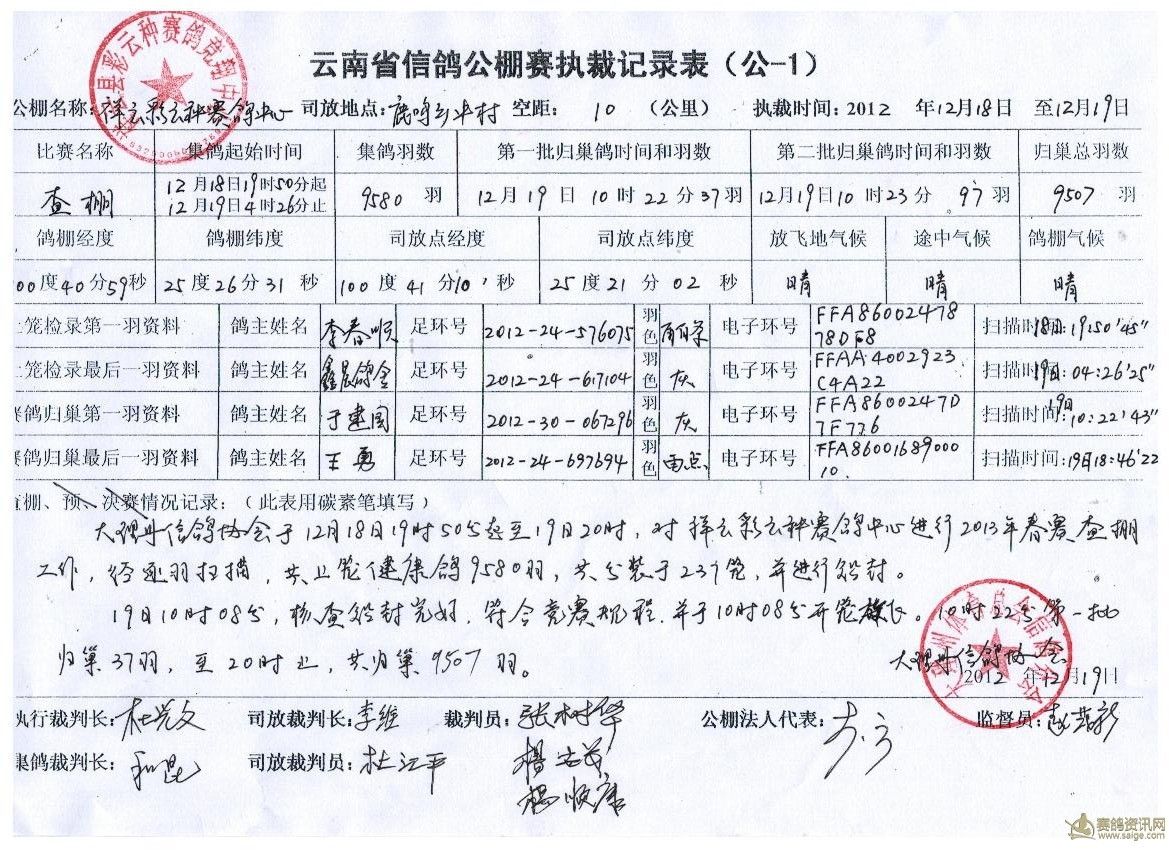 云南省信鸽公棚赛执裁记录表（公-1）
公棚名称：祥云彩云种赛鸽中心 司放地点：鹿鸣乡 村 空距： 10 （公里） 执裁时间：2012 年12月18日 至12月19日
比赛名称 集鸽起始时间 集鸽羽数 第一批归巢鸽时间和羽数 第二批归巢鸽时间和羽数 归巢总羽数
查棚 12月18日19时50分起 12月19日4时26分止 9580 羽 12月19日10时22分37羽 12月19日10时23分 97羽 9507 羽
鸽棚经度 鸽棚纬度 司放点经度 司放点纬度 放飞地气候 途中气候 鸽棚气候
100度40分59秒 25度26分31秒 100度41分10秒 25度21分02秒 晴 晴 晴
上笼检录第一羽资料 鸽主姓名 李春顺 足环号 2012-24-576075 羽色 雨白条 电子环号 FFA86002478 78DF8 扫描时间：18日：19:50'45"
上笼检录最后一羽资料 鸽主姓名 鑫 鸽舍 足环号 2012-24-617104 羽色 灰 电子环号 FFAA4002923 C4A22 扫描时间：19日：04:26'25"
赛鸽归巢第一羽资料 鸽主姓名 于建国 足环号 2012-30-067296 羽色 灰 电子环号 FFA8600247D 7F776 扫描时间：19日10:22'43"
赛鸽归巢最后一羽资料 鸽主姓名 王勇 足环号 2012-24-697694 羽色 雨点 电子环号 FFA86001689000 10. 扫描时间：19日18:46'22
查棚、预、决赛情况记录：（此表用碳素笔填写）
大理州信鸽协会于12月18日19时50分起至19日20时，对祥云彩云种赛鸽中心进行2013年春赛查棚
工作，经逐羽扫描，共上笼健康鸽9580羽，共分装于237笼，并进行铅封。
19日10时08分，核查铅封完好，符合竞赛规程，并于10时08分开笼放飞。10时22分第一批
归巢37羽，至20时止，共归巢9507羽。
大理州信鸽协会
2012 年12月19日
执行裁判长：杜兴文 司放裁判长：李维 裁判员：张树华 公棚法人代表： 监督员：
集鸽裁判长：和昆 司放裁判员：杜江平 杨
杨顺康
赛鸽资讯网
www.saige.com